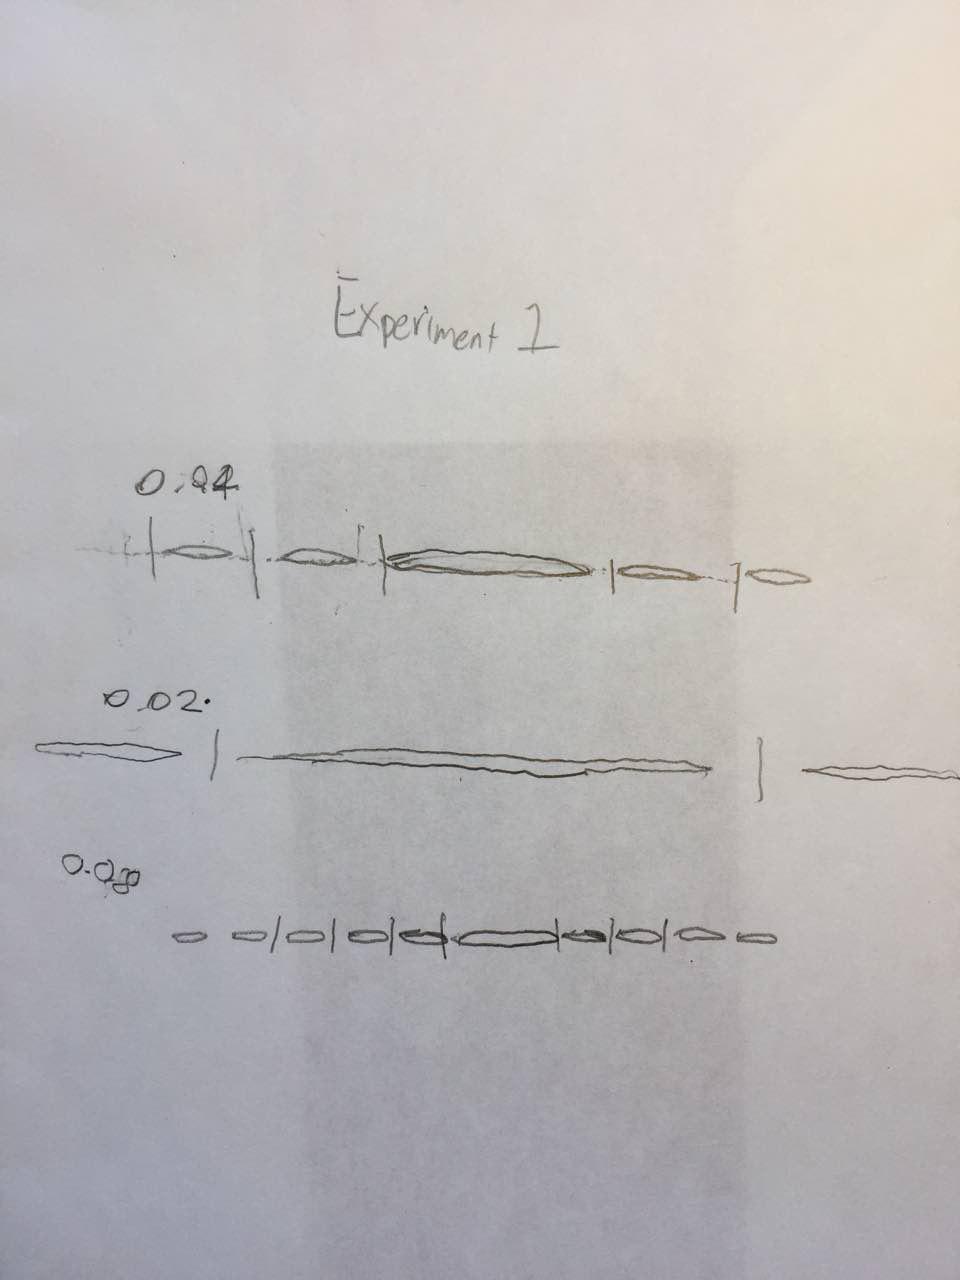 Experiment 1
0.04
0.02.
0.08